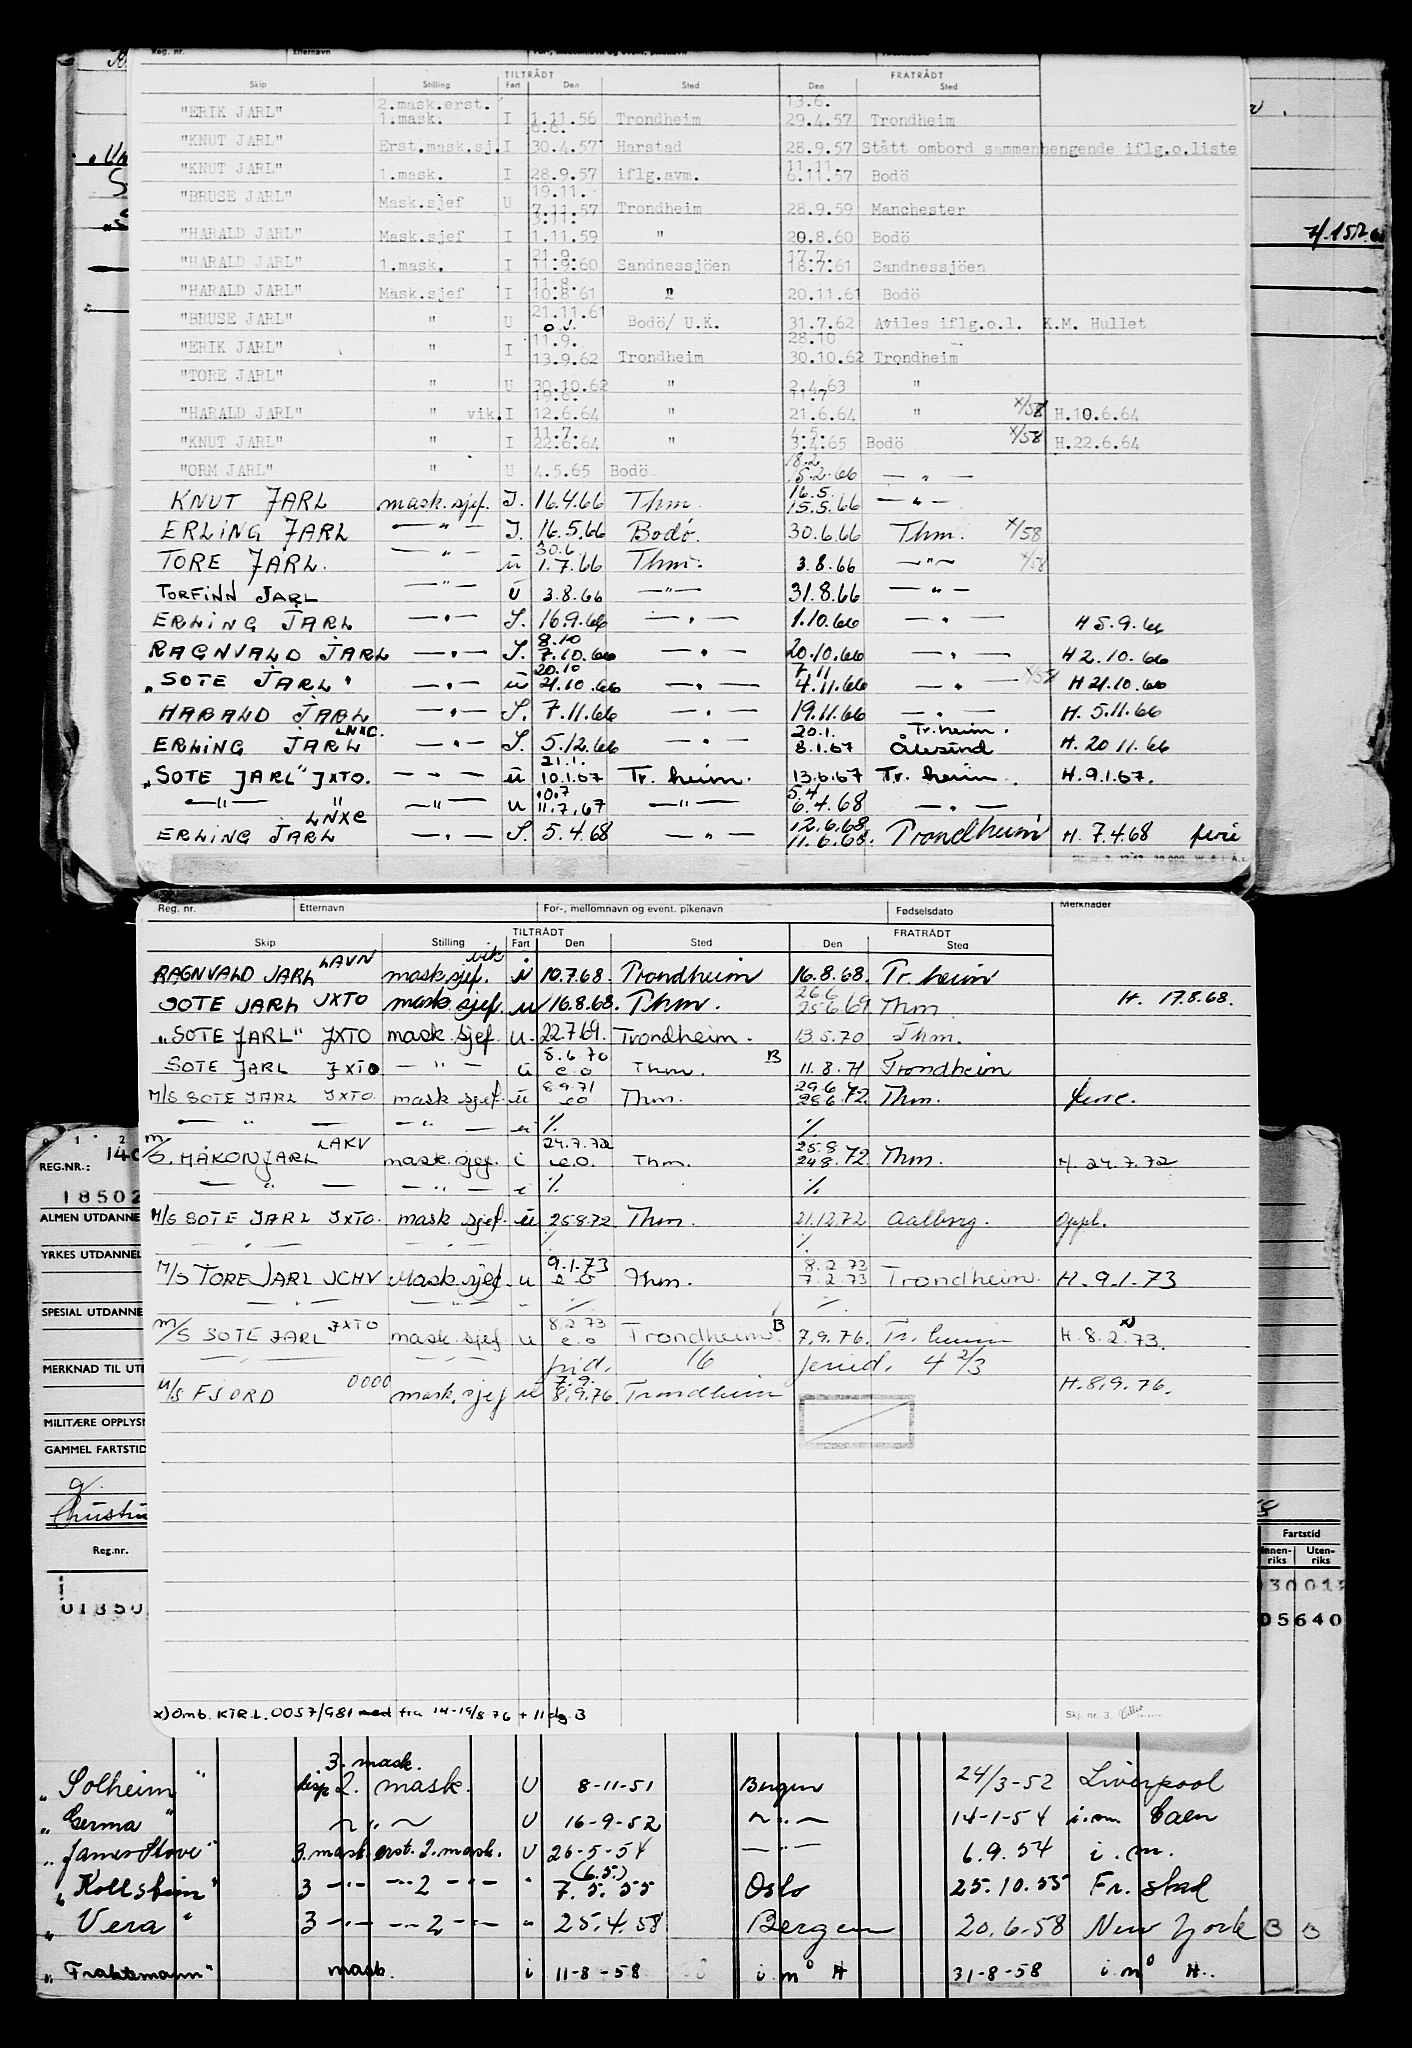 Reg. nr. Etternavn For-, mellomnavn og event. pikenavn Fødselsdato
TILTRÅDT FRATRÅDT
Skip Stilling Fart Den Sted Den Sted
"ERIK JARL" 2.mask.erst. 1.mask. I 1.11.56 Trondheim 13.6. 29.4.57 Trondheim
"KNUT JARL" Erst.mask.sj. I 6.6. 30.4.57 Harstad 28.9.57 Stått ombord sammenhengende iflg.o.liste
"KNUT JARL" 1.mask. I 28.9.57 iflg.avm. 11.11. 6.11.57 Bodö
"BRUSE JARL" Mask.sjef U 19.11. 7.11.57 Trondheim 28.9.59 Manchester
"HARALD JARL" Mask.sjef I 3.11. 1.11.59 " 20.8.60 Bodö
"HARALD JARL" 1.mask. I 21.9. 11.9.60 Sandnessjöen 17.7. 18.7.61 Sandnessjöen
"HARALD JARL" Mask.sjef I 11.8. 10.8.61 " 20.11.61 Bodö
"BRUSE JARL" " U 21.11.61 o.s. Bodö/ U.K. 31.7.62 Aviles iflg.o.l. K.M. Hullet
"ERIK JARL" " I 11.9. 13.9.62 Trondheim 28.10 30.10.62 Trondheim
"TORE JARL" " U 30.10.62 " 2.4.63 "
"HARALD JARL" " vik. I 19.6. 12.6.64 " 11.7 21.6.64 " x/58 H.10.6.64
"KNUT JARL" " I 11.7. 22.6.64 " 4.5. 3.4.65 Bodö x/58 H.22.6.64
"ORM JARL" " U 4.5.65 Bodö 18.2 15.2.66 — " —
KNUT JARL mask.sjef. I. 16.4.66 Thm. 16.5. 15.5.66 — " —
ERLING JARL — " — I. 16.5.66 Bodö. 30.6.66 Thm. x/58
TORE JARL. — " — u 30.6 1.7.66 Thm. 3.8.66 — " — x/58
TORFINN JARL — " — U 3.8.66 — " — 31.8.66 — " —
ERLING JARL — " — I. 16.9.66 — " — 1.10.66 — " — H 5.9.66
RAGNVALD JARL — " — I. 8.10 7.10.66 — " — 20.10.66 — " — H 2.10.66
"SOTE JARL" — " — u 20.10 21.10.66 — " — 7.11 4.11.66 — " — H 21.10.66
HARALD JARL — " — I. 7.11.66 — " — 19.11.66 — " — H. 5.11.66
ERLING JARL LNXC. — " — I. 5.12.66 — " — 20.1. 8.1.67 Tr.heim. Ålesund H. 20 11.66
"SOTE JARL" JXTO. — " — u 21.1. 10.1.67 Tr. heim. 13.6.67 Tr. heim. H.9.1.67.
— " — " — " — u 10.7 11.7.67 — " — 5.4 6.4.68 — " —
ERLING JARL LNXC — " — I. 5.4.68 — " — 12.6.68 11.6.68. Trondheim H. 7.4.68 ferie
Reg. nr. Etternavn For-, mellomnavn og event. pikenavn Fødselsdato Merknader
TILTRÅDT FRATRÅDT
Skip Stilling Fart Den Sted Den Sted
RAGNVALD JARL LAVN mask.sjef. vik i 10.7.68. Trondheim 16.8.68. Tr. heim
SOTE JARL JXTO mask sjef. u 16.8.68. Thm. 26.6 25.6.69 Thm. H. 17.8.68.
"SOTE JARL" JXTO mask. sjef. u. 22.7.69. Trondheim. 13.5.70 Thm.
SOTE JARL JXTO — " — u 8.6.70 e.o Thm. B 11.8.71 Trondheim
M/S SOTE JARL JXTO. mask sjef. u 8.9.71 eo Thm. 29.6 28.6.72. Thm. ferie.
— " — — " — u % %
M/S. HÅKON JARL LAKV mask.sjef. i 24.7.72 e.o. Thm. 25.8 24.8.72 Thm. H. 24.7.72
— " — — " — i % %
M/S SOTE JARL JXTO. mask sjef. u 25.8.72 Thm. 21.12.72 Aalborg. oppl.
— " — — " — % %
M/S TORE JARL JCHV Mask.sjef. u 9.1.73 e o Thm. 8.2.73 7.2.73 Trondheim. H. 9.1.73
— " — — " — % %
M/S SOTE JARL JXTO mask sjef u 8.2.73 e.o Trondheim B 7.9.76. Tr. heim H. 8.2.73. x)
— " — — " — 16 4 2/3
M/S FJORD 0000 mask. sjef u 7.9. 8.9.76. Trondheim H.8.9.76.
x) Omb. KTR.L. 0057/981 med fra 14-19/8 76 + 11 dg. B
Skj. nr. 3.
REG.NR.: 140
18502
ALMEN UTDANNE
YRKES UTDANNEL
SPESIAL UTDANNE
MERKNAD TIL UTD
MILITÆRE OPPLYSN
GAMMEL FARTSTID
Reg.nr. Fartstid
Innen-riks Uten-riks
01850 30012
05640
"Solheim" 3. mask. disp 2. mask. U 8-11-51 Bergen 24/3-52 Liverpool
"Germa" ~ " ~ U 16-9-52 ~ " ~ 14-1-54 i.m Caen
"James Stove" 3.mask. erst. 2.mask. U 26-5-54 — " — 6.9.54 i.m.
"Kollstein" 3 — " — — " — 2 — " — " (6.5.) 7.5.55 Oslo 25.10.55 Fr. stad
"Vera" 3 — " — — " — 2 — " — " 25.4.58 Bergen 20.6-58 New York B B
"Fraktsmann" mask. i 11-8-58 i.m° H 31-8-58 i.m° H..